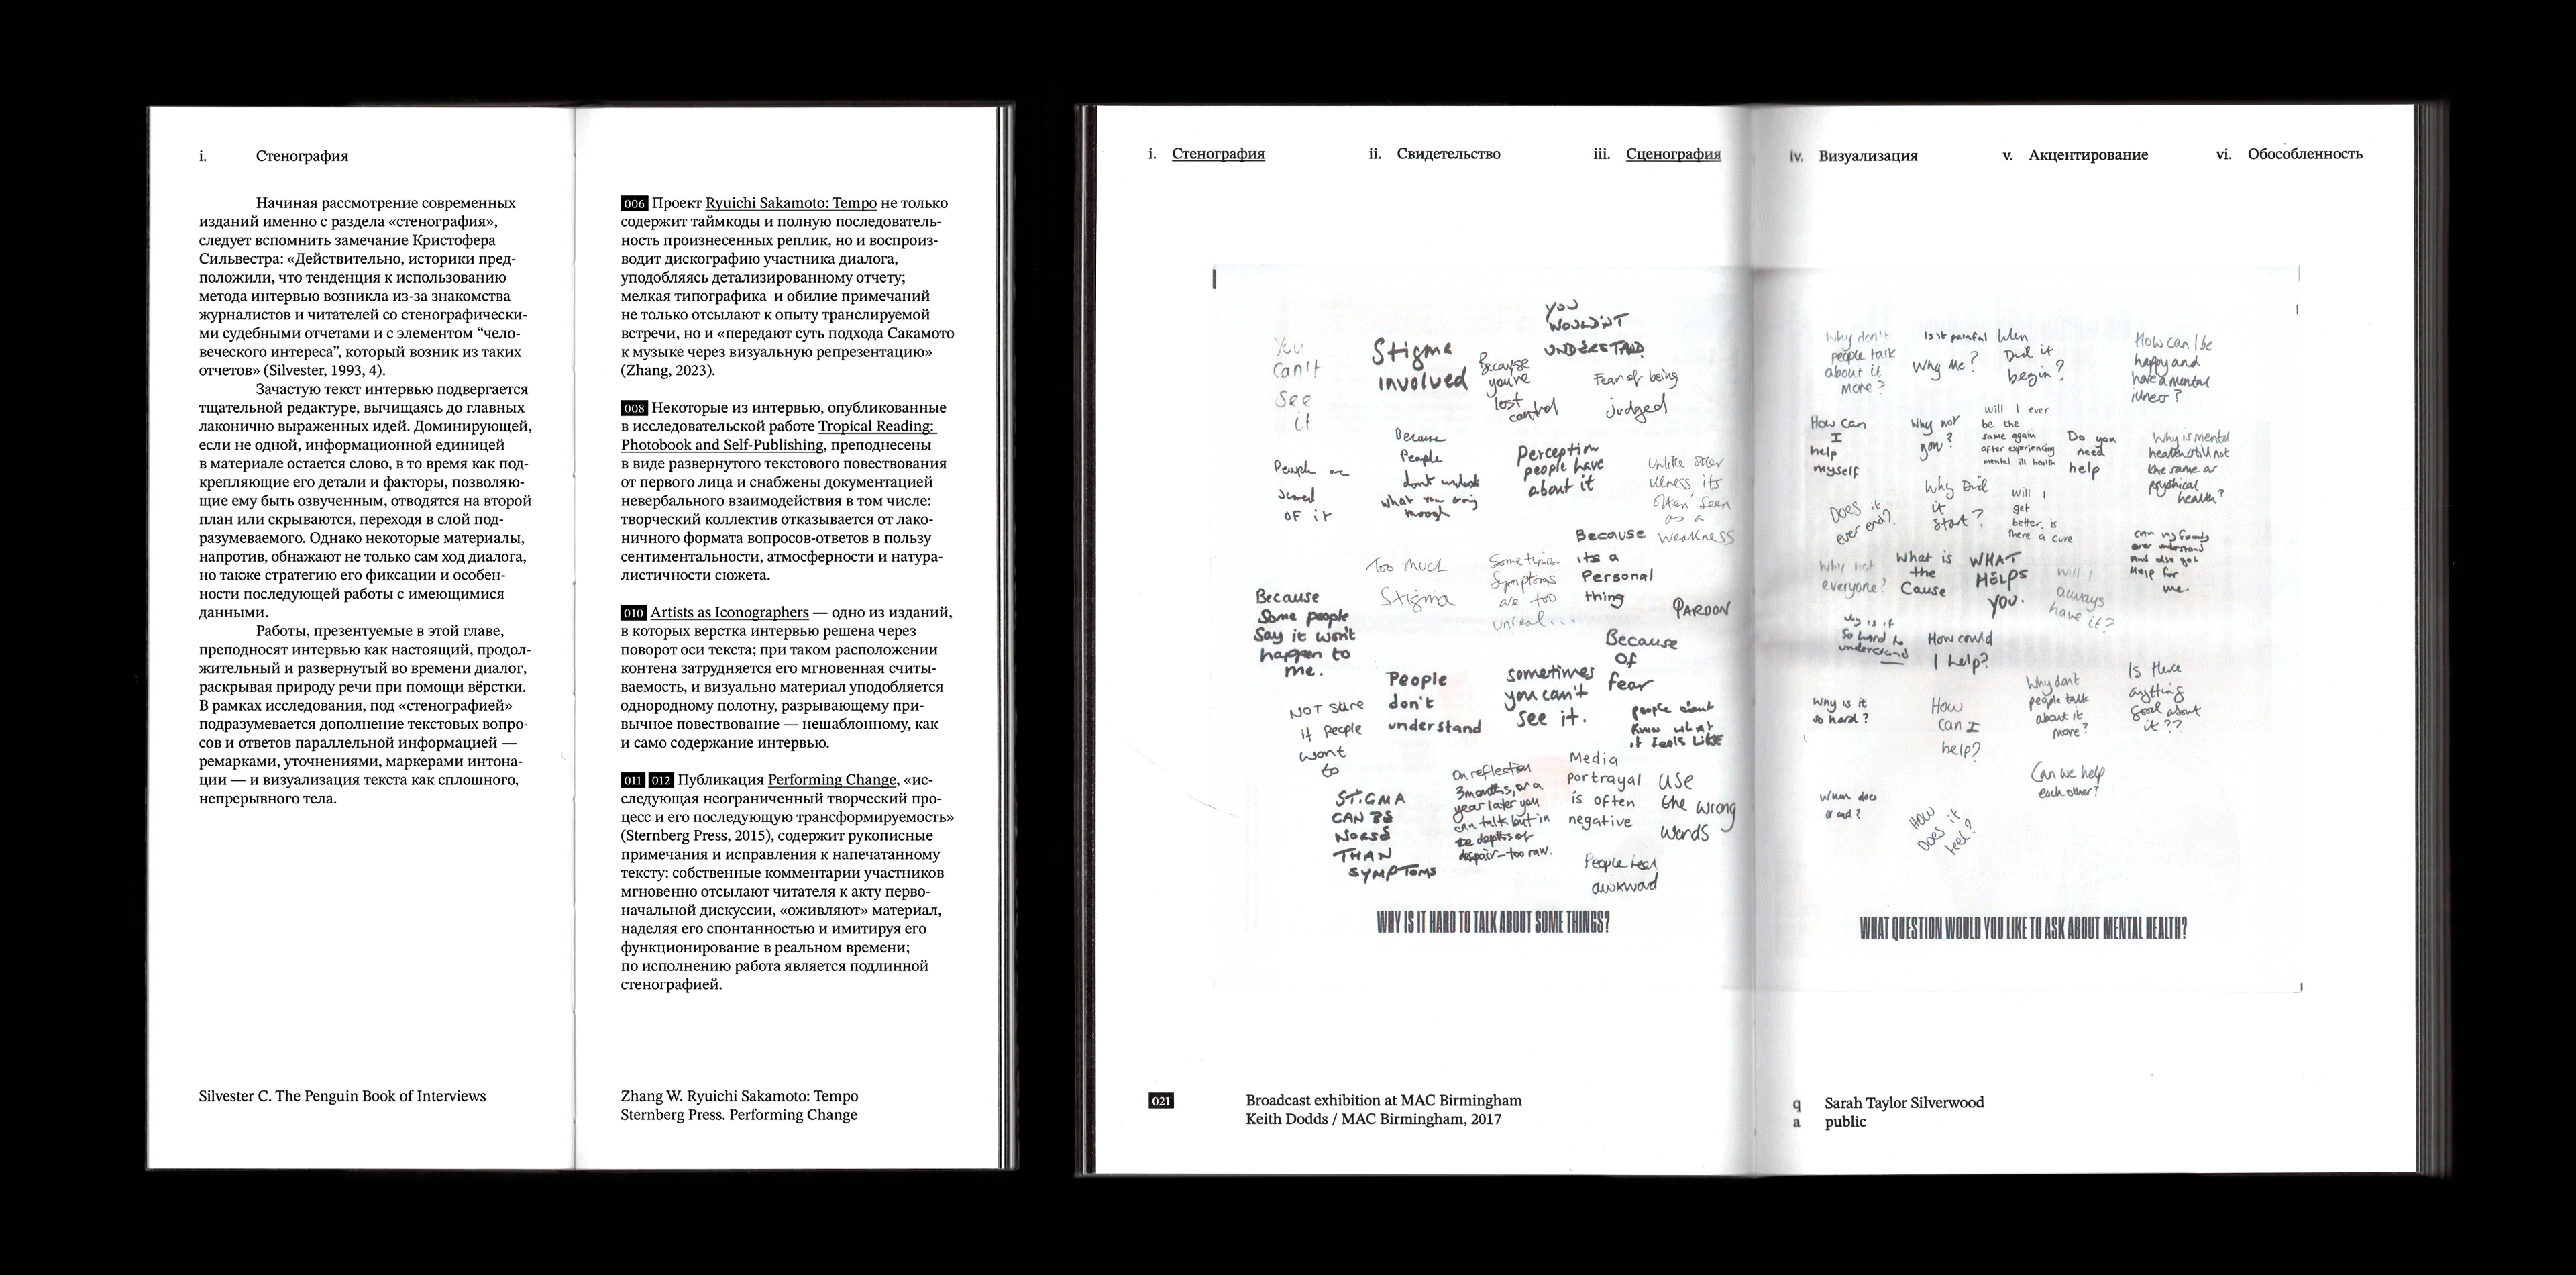 i. Стенография
Начиная рассмотрение современных
изданий именно с раздела «стенография»,
следует вспомнить замечание Кристофера
Сильвестра: «Действительно, историки пред-
положили, что тенденция к использованию
метода интервью возникла из-за знакомства
журналистов и читателей со стенографически-
ми судебными отчетами и с элементом “чело-
веческого интереса”, который возник из таких
отчетов» (Silvester, 1993, 4).
Зачастую текст интервью подвергается
тщательной редактуре, вычищаясь до главных
лаконично выраженных идей. Доминирующей,
если не одной, информационной единицей
в материале остается слово, в то время как под-
крепляющие его детали и факторы, позволяю-
щие ему быть озвученным, отводятся на второй
план или скрываются, переходя в слой под-
разумеваемого. Однако некоторые материалы,
напротив, обнажают не только сам ход диалога,
но также стратегию его фиксации и особен-
ности последующей работы с имеющимися
данными.
Работы, презентуемые в этой главе,
преподносят интервью как настоящий, продол-
жительный и развернутый во времени диалог,
раскрывая природу речи при помощи вёрстки.
В рамках исследования, под «стенографией»
подразумевается дополнение текстовых вопро-
сов и ответов параллельной информацией —
ремарками, уточнениями, маркерами интона-
ции — и визуализация текста как сплошного,
непрерывного тела.
Silvester C. The Penguin Book of Interviews
006 Проект Ryuichi Sakamoto: Tempo не только
содержит таймкоды и полную последователь-
ность произнесенных реплик, но и воспроиз-
водит дискографию участника диалога,
уподобляясь детализированному отчету;
мелкая типографика и обилие примечаний
не только отсылают к опыту транслируемой
встречи, но и «передают суть подхода Сакамото
к музыке через визуальную репрезентацию»
(Zhang, 2023).
008 Некоторые из интервью, опубликованные
в исследовательской работе Tropical Reading:
Photobook and Self-Publishing, преподнесены
в виде развернутого текстового повествования
от первого лица и снабжены документацией
невербального взаимодействия в том числе:
творческий коллектив отказывается от лако-
ничного формата вопросов-ответов в пользу
сентиментальности, атмосферности и натура-
листичности сюжета.
010 Artists as Iconographers — одно из изданий,
в которых верстка интервью решена через
поворот оси текста; при таком расположении
контена затрудняется его мгновенная считы-
ваемость, и визуально материал уподобляется
однородному полотну, разрывающему при-
вычное повествование — нешаблонному, как
и само содержание интервью.
011 012 Публикация Performing Change, «ис-
следующая неограниченный творческий про-
цесс и его последующую трансформируемость»
(Sternberg Press, 2015), содержит рукописные
примечания и исправления к напечатанному
тексту: собственные комментарии участников
мгновенно отсылают читателя к акту перво-
начальной дискуссии, «оживляют» материал,
наделяя его спонтанностью и имитируя его
функционирование в реальном времени;
по исполнению работа является подлинной
стенографией.
Zhang W. Ryuichi Sakamoto: Tempo
Sternberg Press. Performing Change
i. Стенография ii. Свидетельство iii. Сценография iv. Визуализация v. Акцентирование vi. Обособленность
YOU
WOULDN'T
UNDERSTAND.
You
Can't
See
it
Stigma
involved
Because
you're
lost
control
Fear of being
judged
People are
scared
OF it
Because
People
don't
what you
through
Perception
people have
about it
Unlike other
illness its
often seen
as a
weakness
Too much
Stigma
Sometimes
Symptoms
are too
unreal...
Because
its a
Personal
thing
PARDON
Because
Some people
Say it won't
happen to
me.
People
don't
understand
sometimes
you can't
see it.
Because
of
fear
NOT SURE
if people
want
to
people don't
know what
it feels LIKE
STIGMA
CAN BE
WORSE
THAN
SYMPTOMS
on reflection
3 months, or a
year later you
can talk but in
the depths of
despair – too raw.
Media
portrayal
is often
negative
use
the wrong
words
People feel
awkward
WHY IS IT HARD TO TALK ABOUT SOME THINGS?
Why don't
people talk
about it
more?
Is it painful
Why Me?
When
Did it
begin?
How can I be
happy and
have a mental
illness?
How can
I
help
myself
Why not
you?
will I ever
be the
same again
after experiencing
mental ill health
Do you
need
help
Why is mental
health still not
the same as
physical
health?
Does it
ever end?
Why Did
it
start?
will I
get
better, is
there a cure
can my family
ever understand
and also get
Help for
me.
Why not
everyone?
What is
the
Cause
WHAT
HELPS
YOU.
will I
always
have it?
why is it
so hard to
understand
How could
I help?
Why is it
so hard?
How
can I
help?
Why don't
people talk
about it
more?
Is there
anything
good about
it??
When does
it end?
How
Does it
feel?
Can we help
each other?
WHAT QUESTION WOULD YOU LIKE TO ASK ABOUT MENTAL HEALTH?
021 Broadcast exhibition at MAC Birmingham
Keith Dodds / MAC Birmingham, 2017
q Sarah Taylor Silverwood
a public